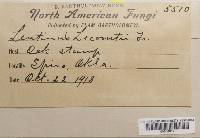 E. BARTHOLOMEW HERB. 5510
North American Fungi
Collected by ELAM BARTHOLOMEW.
Lentinus Lecomtei Fr.
Host Oak stump
Locality Spiro, Okla.
Date Oct. 22 1913